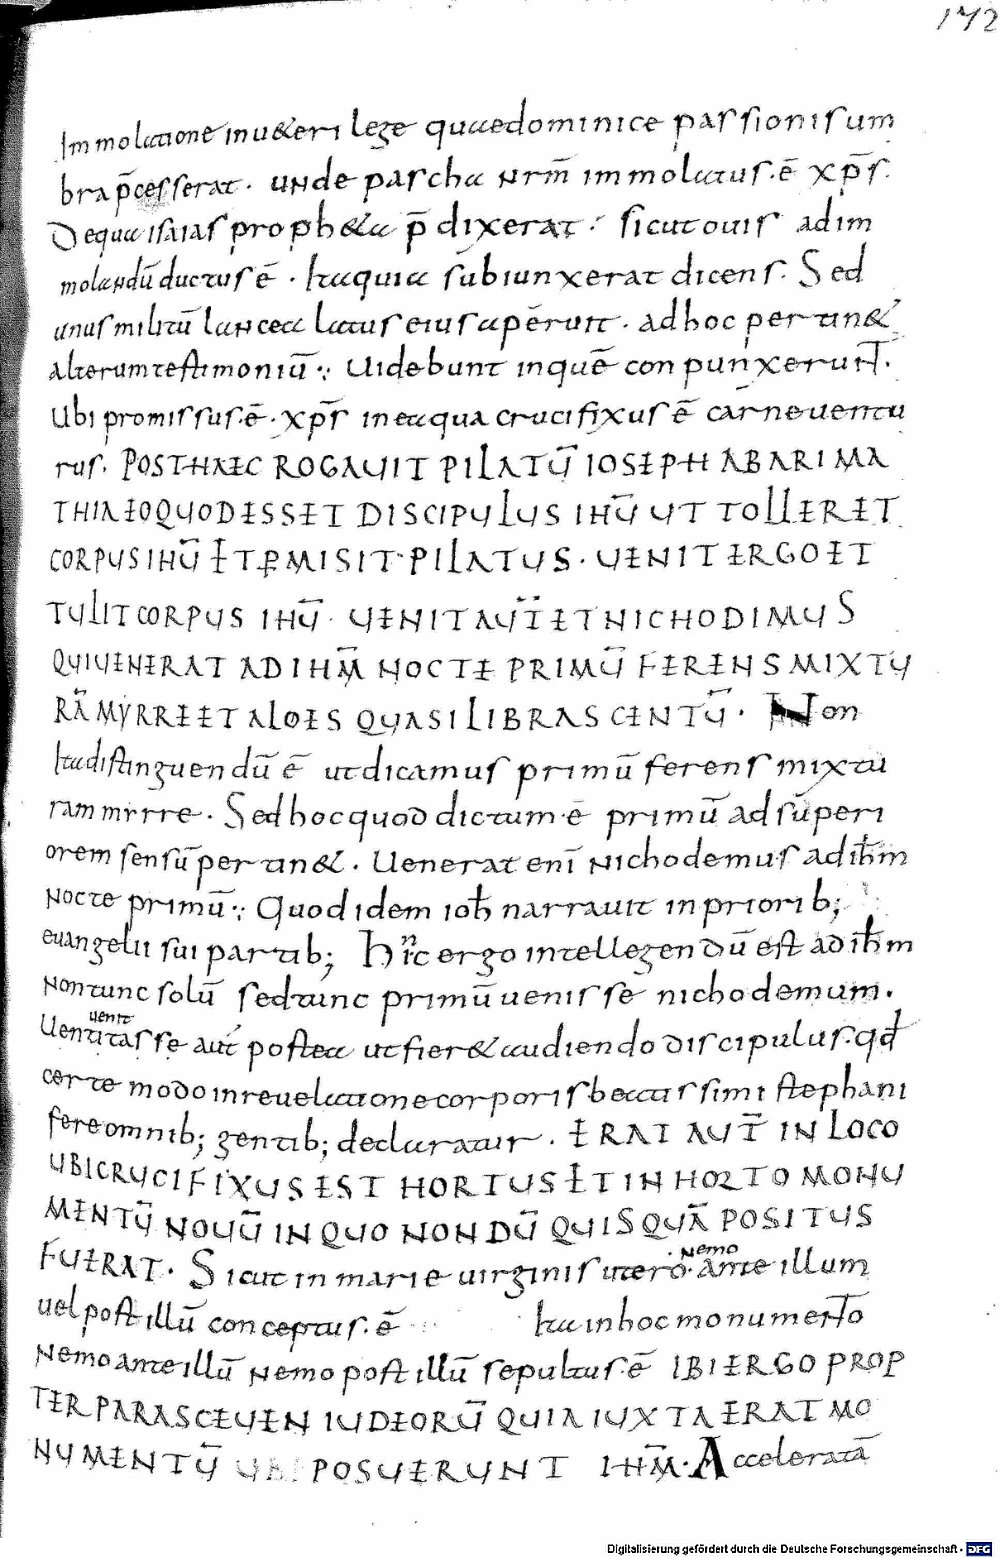 172
Immolatione inu&eri lege quaedominice passionis um
bra p̄cesserat. unde pascha nr̄m immolatus. ē xp̄s.
Dequa isaias proph&a p̄dixerat. sicut ouis adim
molandū ductus ē. Itaquia subiunxerat dicens. Sed
unus militū lancea latus eius apēruit. ad hoc pertin&
alterum testimoniū. Uidebunt inquē conpunxerunt.
Ubi promissus. ē. xp̄s inea qua crucifixus ē carne uentu
rus. POST HAEC ROGAUIT PILATŪ IOSEPH AB ARIMA
THIA EO QUOD ESSET DISCIPULUS IHŪ UT TOLLERET
CORPUS IHŪ ET PMISIT PILATUS. UENIT ERGO ET
TULIT CORPUS IHŪ. UENIT AUT̄ ET NICHODIMUS
QUI UENERAT AD IHM̄ NOCTE PRIMŪ FERENS MIXTU
RĀ MYRRE ET ALOES QUASI LIBRAS CENTŪ. Non
ita distinguendū ē ut dicamus primū ferens mixtu
ram mirre. Sed hoc quod dictum. ē primū ad superi
orem sensū pertin&. Uenerat enī nichodemus ad ihm̄
nocte primū. Quod idem ioh narrauit in priorib;
euangelii sui partib; Hinc ergo intellegendū est ad ihm̄
non tunc solū sed tunc primū uenisse nichodemum.
uenit
Uentitasse aut̄ postea ut fier& audiendo discipulus. qd
certe modo in reuelatione corporis beatissimi stephani
fere omnib; gentib; declaratur. ERAT AUT̄ IN LOCO
UBI CRUCIFIXUS EST HORTUS ET IN HORTO MONU
MENTŪ NOUŪ IN QUO NONDŪ QUISQUĀ POSITUS
FUERAT. Sicut in marie uirginis utero. nemo ante illum
uel post illū conceptus. ē Ita in hoc monumento
nemo ante illū nemo post illū sepultus. ē IBI ERGO PROP
TER PARASCEUEN IUDEORŪ QUIA IUXTA ERAT MO
NUMENTŪ UBI POSUERUNT IHM̄. Acceleratā
Digitalisierung gefördert durch die Deutsche Forschungsgemeinschaft - DFG